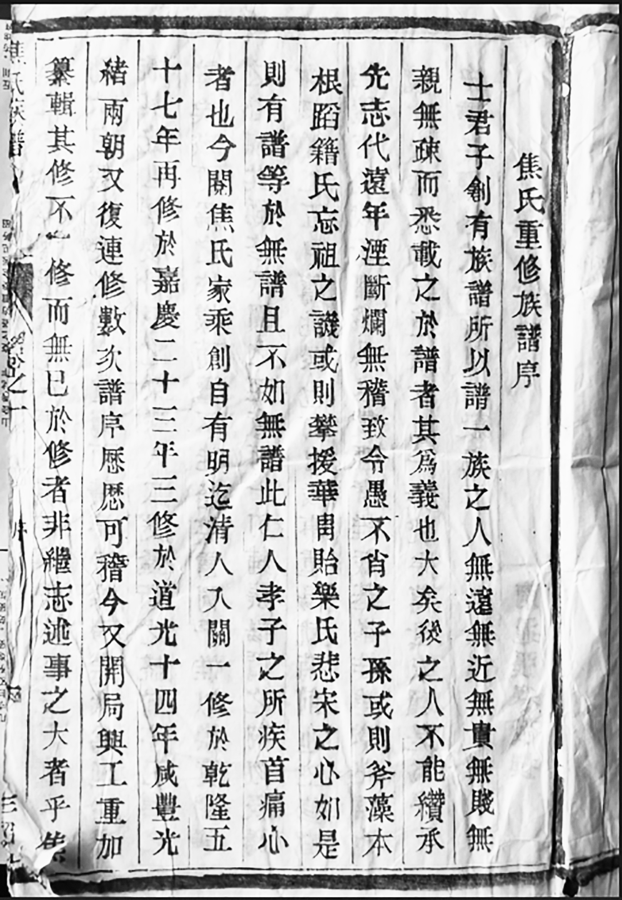 焦氏重修族譜序
士君子創有族譜所以譜一族之人無遠無近無貴無賤無
親無疎而悉載之於譜者其爲義也大矣後之人不能纘承
先志代遠年湮斷爛無稽致令愚不肖之子孫或則斧藻本
根蹈籍氏忘祖之譏或則攀援華胄貽欒氏悲宋之心如是
則有譜等於無譜且不如無譜此仁人孝子之所疾首痛心
者也今閱焦氏家乘創自有明迄清人入關一修於乾隆五
十七年再修於嘉慶二十三年三修於道光十四年咸豐光
緒兩朝又復連修數次譜序歷歷可稽今又開局興工重加
纂輯其修不 修而無已於修者非繼志述事之大者乎焦
焦氏族譜 卷之一 序 三